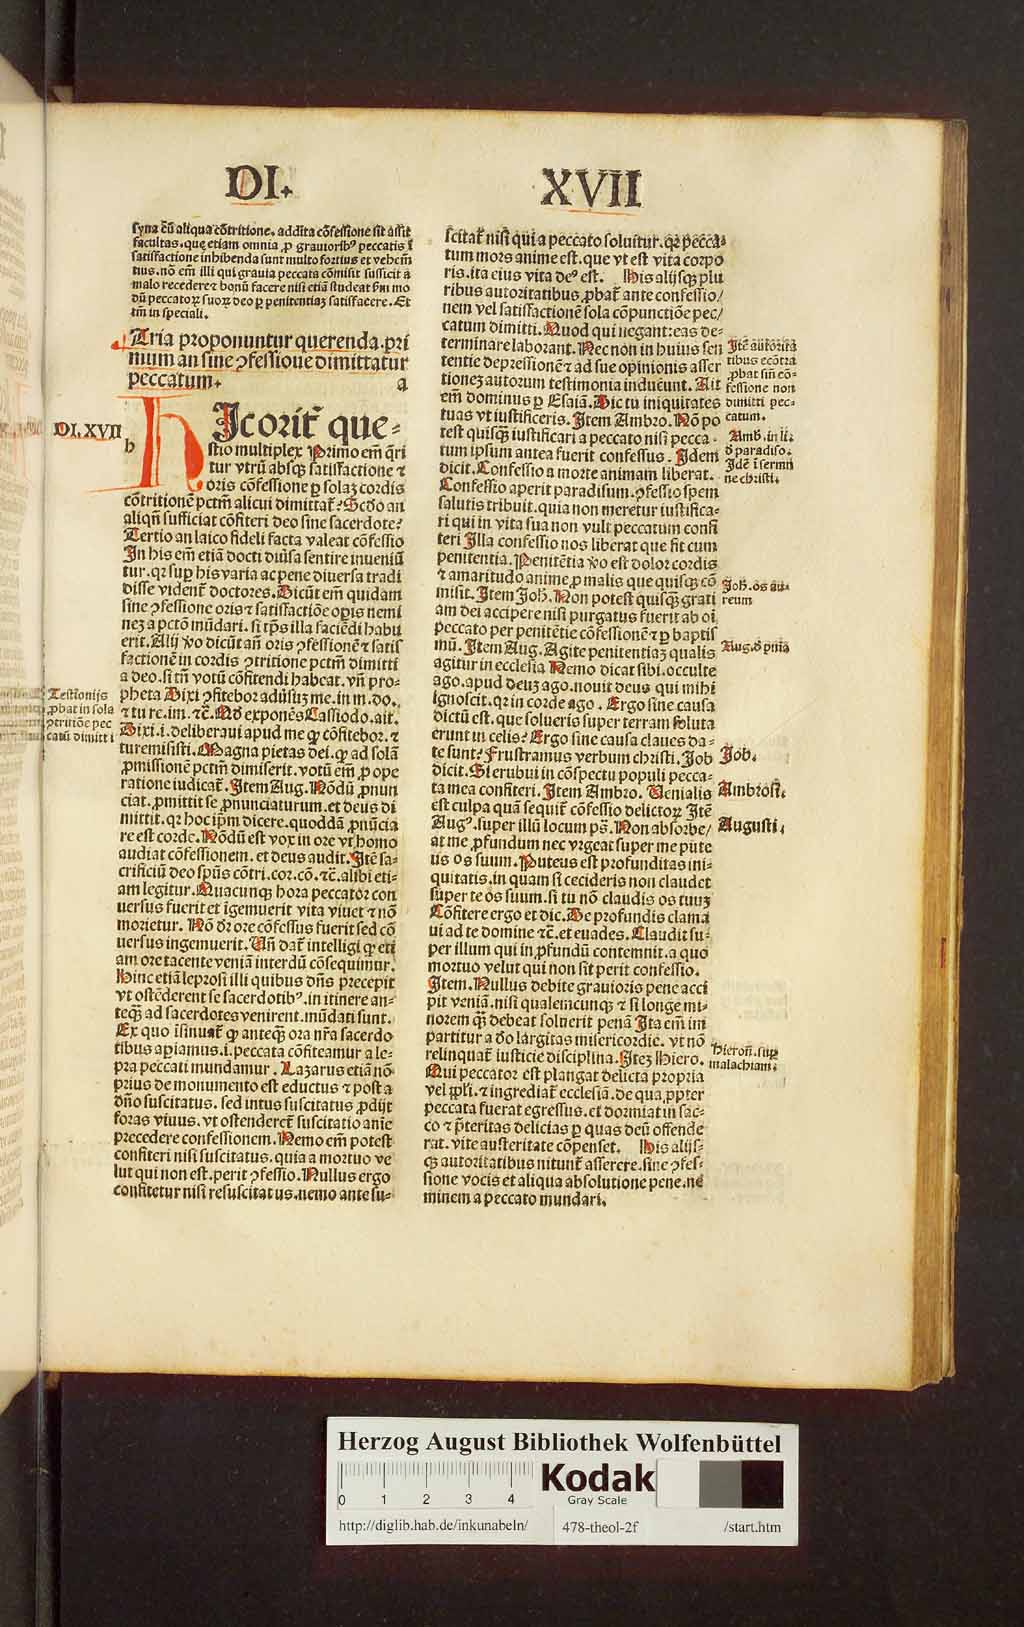 DI.
XVII
syna cū aliqua cōtritione. addita cōfessione sit assit
facultas. que etiam omnia ꝓ grauiorib⁹ peccatis ī
satisfactione inhibenda sunt multo fortius et vehem̄
tius. nō em̄ illi qui grauia peccata cōmisit sufficit a
malo recedere ⁊ bonū facere nisi etiā studeat
dū peccatoꝝ suoꝝ deo ꝑ penitentiaꝫ satisfacere. Et
tm̄ in speciali.
Tria proponuntur querenda. pri
mum an sine ꝯfessione dimittatur
peccatum. a
DI. XVII
b
HIc orit̄ que-
stio multiplex Primo em̄ q̄ri
tur vtrū absqꝫ satisfactione ⁊
oris cōfessione ꝑ solaꝫ cordis
cōtritionē pctm̄ alicui dimittat̄? Scd̄o an
aliqn̄ sufficiat cōfiteri deo sine sacerdote?
Tertio an laico fideli facta valeat cōfessio
In his em̄ etiā docti diu̾sa sentire inueniū
tur. qꝛ suꝑ his varia ac pene diuersa tradi
disse vident̄ doctores. Dicūt em̄ quidam
sine ꝯfessione oris ⁊ satisfactiōe oꝑis nemi
neꝫ a pctō mūdari. si tp̄s illa faciēdi habu
erit. Alij v̾o dicūt an̄ oris ꝯfessionē ⁊ satis
factionē in cordis ꝯtritione pctm̄ dimitti
a deo. si tn̄ votū cōfitendi habeat. vn̄ pro-
pheta Dixi ꝯfitebor adu̾suꝫ me. in. m. do.
⁊ tu re. im. ⁊c̄. Qd̄ exponēs Cassiodo. ait.
Dixi. i. deliberaui apud me ꝙ cōfitebor. ⁊
tu remisisti. Magna pietas dei. ꝙ ad solā
ꝓmissionē pctm̄ dimiserit. votū em̄ ꝓ ope
ratione iudicat̄. Item Aug. Nōdū ꝓnun
ciat. ꝓmittit se ꝓnunciaturum. et deus di
mittit. qꝛ hoc ip̄m dicere. quoddā ꝓnūcia
re est corde. Nōdū est vox in ore vt homo
audiat cōfessionem. et deus audit. Itē sa-
crificiū deo sp̄us cōtri. cor. cō. ⁊c̄. alibi eti-
am legitur. Quacunqꝫ hora peccator con
uersus fuerit et īgemuerit vita viuet ⁊ nō
morietur. Nō dr̄ ore cōfessus fuerit sed cō
uersus ingemuerit. Vn̄ dat̄ intelligi ꝙ eti
am ore tacente veniā interdū cōsequimur.
Hinc etiā leprosi illi quibus dn̄s precepit
vt ostēderent se sacerdotib⁹. in itinere an-
teqꝫ̄ ad sacerdotes venirent. mūdati sunt.
Ex quo īsinuat̄ ꝙ anteqꝫ̄ ora nr̄a sacerdo
tibus aꝑiamus. i. peccata cōfiteamur a le-
pra peccati mundamur. Lazarus etiā nō
prius de monumento est eductus ⁊ post a
dn̄o suscitatus. sed intus suscitatus ꝓdijt
foras viuus. vt ostenderet̄ suscitatio an̄e
precedere confessionem. Nemo em̄ potest
confiteri nisi suscitatus. quia a mortuo ve
lut qui non est. perit ꝯfessio. Nullus ergo
confitetur nisi resuscitatus. nemo ante su-
Testīonijs
ꝓbat in sola
ꝯtritiōe pec
catū dimitti
scitat̄ nisi qui a peccato soluitur. qꝛ pecca-
tum mors anime est. que vt est vita corpo
ris. ita eius vita de⁹ est. His alijsqꝫ plu
ribus autoritatibus ꝓbat̄ ante confessio/
nem vel satisfactionē sola cōpunctiōe pec/
catum dimitti. Quod qui negant: eas de-
terminare laborant. Nec non in huius sen
tentie depressionē ⁊ ad sue opinionis asser
tioneꝫ autorum testimonia inducunt. Ait
em̄ dominus ꝑ Esaiā. Dic tu iniquitates
tuas vt iustificeris. Item Ambro. Nō po
test quisqꝫ iustificari a peccato nisi pecca-
tum ipsum antea fuerit confessus. Idem
dicit. Confessio a morte animam liberat.
Confessio aperit paradisum. ꝯfessio spem
salutis tribuit. quia non meretur iustifica-
ri qui in vita sua non vult peccatum confi
teri Illa confessio nos liberat que fit cum
penitentia. Penitētia v̾o est dolor cordis
⁊ amaritudo anime ꝓ malis que quisqꝫ cō
misit. Item Joh. Non potest quisqꝫ grati
am dei accipere nisi purgatus fuerit ab oī
peccato per penitētie cōfessionē ⁊ ꝑ baptis
mū. Item Aug. Agite penitentiaꝫ qualis
agitur in ecclesia Nemo dicat sibi. occulte
ago. apud deuꝫ ago. nouit deus qui mihi
ignoscit. qꝛ in corde ago. Ergo sine causa
dictū est. que solueris super terram soluta
erunt in celis? Ergo sine causa claues da-
te sunt? Frustramus verbum christi. Job
dicit. Si erubui in cōspectu populi pecca-
ta mea confiteri. Item Ambro. Venialis
est culpa quā sequit̄ cōfessio delictoꝝ Itē
Aug⁹. super illū locum ps̄. Non absorbe/
at me ꝓfundum nec vrgeat super me pute
us os suum. Puteus est profunditas ini-
quitatis. in quam si cecideris non claudet
super te os suum. si tu nō claudis os tuuꝫ
Cōfitere ergo et dic. De profundis clama
ui ad te domine ⁊c̄. et euades. Claudit su-
per illum qui in ꝓfundū contemnit. a quo
mortuo velut qui non sit perit confessio.
Item. Nullus debite grauioris pene acci
pit veniā. nisi qualemcunqꝫ ⁊ si longe mi-
norem qꝫ̄ debeat soluerit penā Ita em̄ im
partitur a dō largitas misericordie. vt nō
relinquat̄ iusticie disciplina. Iteꝫ Hiero.
Qui peccator est plangat delicta propria
vel ꝓpl̄i. ⁊ ingrediat̄ ecclesiā. de qua ꝓpter
peccata fuerat egressus. et dormiat in sac-
co ⁊ p̄teritas delicias ꝑ quas deū offende
rat. vite austeritate cōpenset. His alijs-
qꝫ autoritatibus nitunt̄ asserere. sine ꝯfes-
sione vocis et aliqua absolutione pene. ne
minem a peccato mundari.
Itē autorita
tibus ecōtra
ꝓbat sin̄ cō-
fessione non
dimitti pec-
catum.
Amb. in li.
d̄ paradiso.
Idē ī sermn̄
ne christi.
Joh. os au-
reum
Aug. d̄ pnīa
Job.
Ambrosi.
Augusti.
Hieron̄. suꝑ
malachiam.
Herzog August Bibliothek Wolfenbüttel
0 1 2 3 4
Kodak
Gray Scale
http://diglib.hab.de/inkunabeln/
478-theol-2f
/start.htm